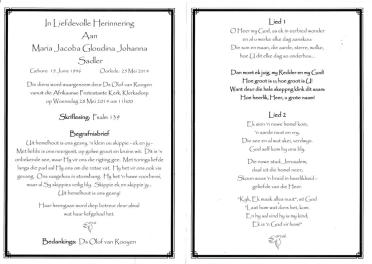 In Liefdevolle Herinnering
Aan
Maria Jacoba Gloudina Johanna
Sadler
Gebore: 15 Junie 1936 Oorlede: 23 Mei 2014
Die diens word waargeneem deur Ds Olof van Rooyen
vanuit die Afrikaanse Protestante Kerk, Klerksdorp
op Woensdag 28 Mei 2014 om 11h00
Skriflesing: Psalm 139
Begrafnisbrief
Uit hemelhout is ons gesny, 'n klein ou skippie - ek en jy -
Met liefde is ons toegerus, op golwe groot en bruin wit. Dit is 'n
onbekende see, waar Hy vir ons die rigting gee. Met toringa liefde
langs die pad sal Hy ons om die rotse vat. Hy het vir ons ook vis
gevang. Ons saagjies is stomhang. Hy het 'n hawe voorberei,
waar al Sy skippies veilig bly. Skippie ek en skippie jy,
Uit hemelhout is ons gesny!
Haar heengaan word diep betreur deur almal
wat haar liefgehad het.
Bedankings: Ds Olof van Rooyen
Lied 1
O Heer my God, as ek in eerbied wonder
en al u werke elke dag aanskou:
Die son en maan, die aarde, sterre, wolke,
hoe U dit elke dag so onderhou...
Dan moet ek juig, my Redder en my God!
Hoe groot is u, hoe groot is U!
Want deur die hele skepping klink dit weer:
Hoe heerlik, Heer, u grote naam!
Lied 2
Ek sien 'n nuwe hemel kom,
'n aarde nuut en vry.
Die see en al wat skei, verdwyn.
God self kom by ons bly.
Die nuwe stad, Jerusalem,
daal uit die hemel neer.
Skoon soos 'n bruid in heerlikheid -
geliefde van die Heer.
"Kyk, Ek maak alles nuut", sê God
"Laat hom wat dors het, kom.
En hy sal vind hy is my kind,
Ek is 'n God vir hom!"